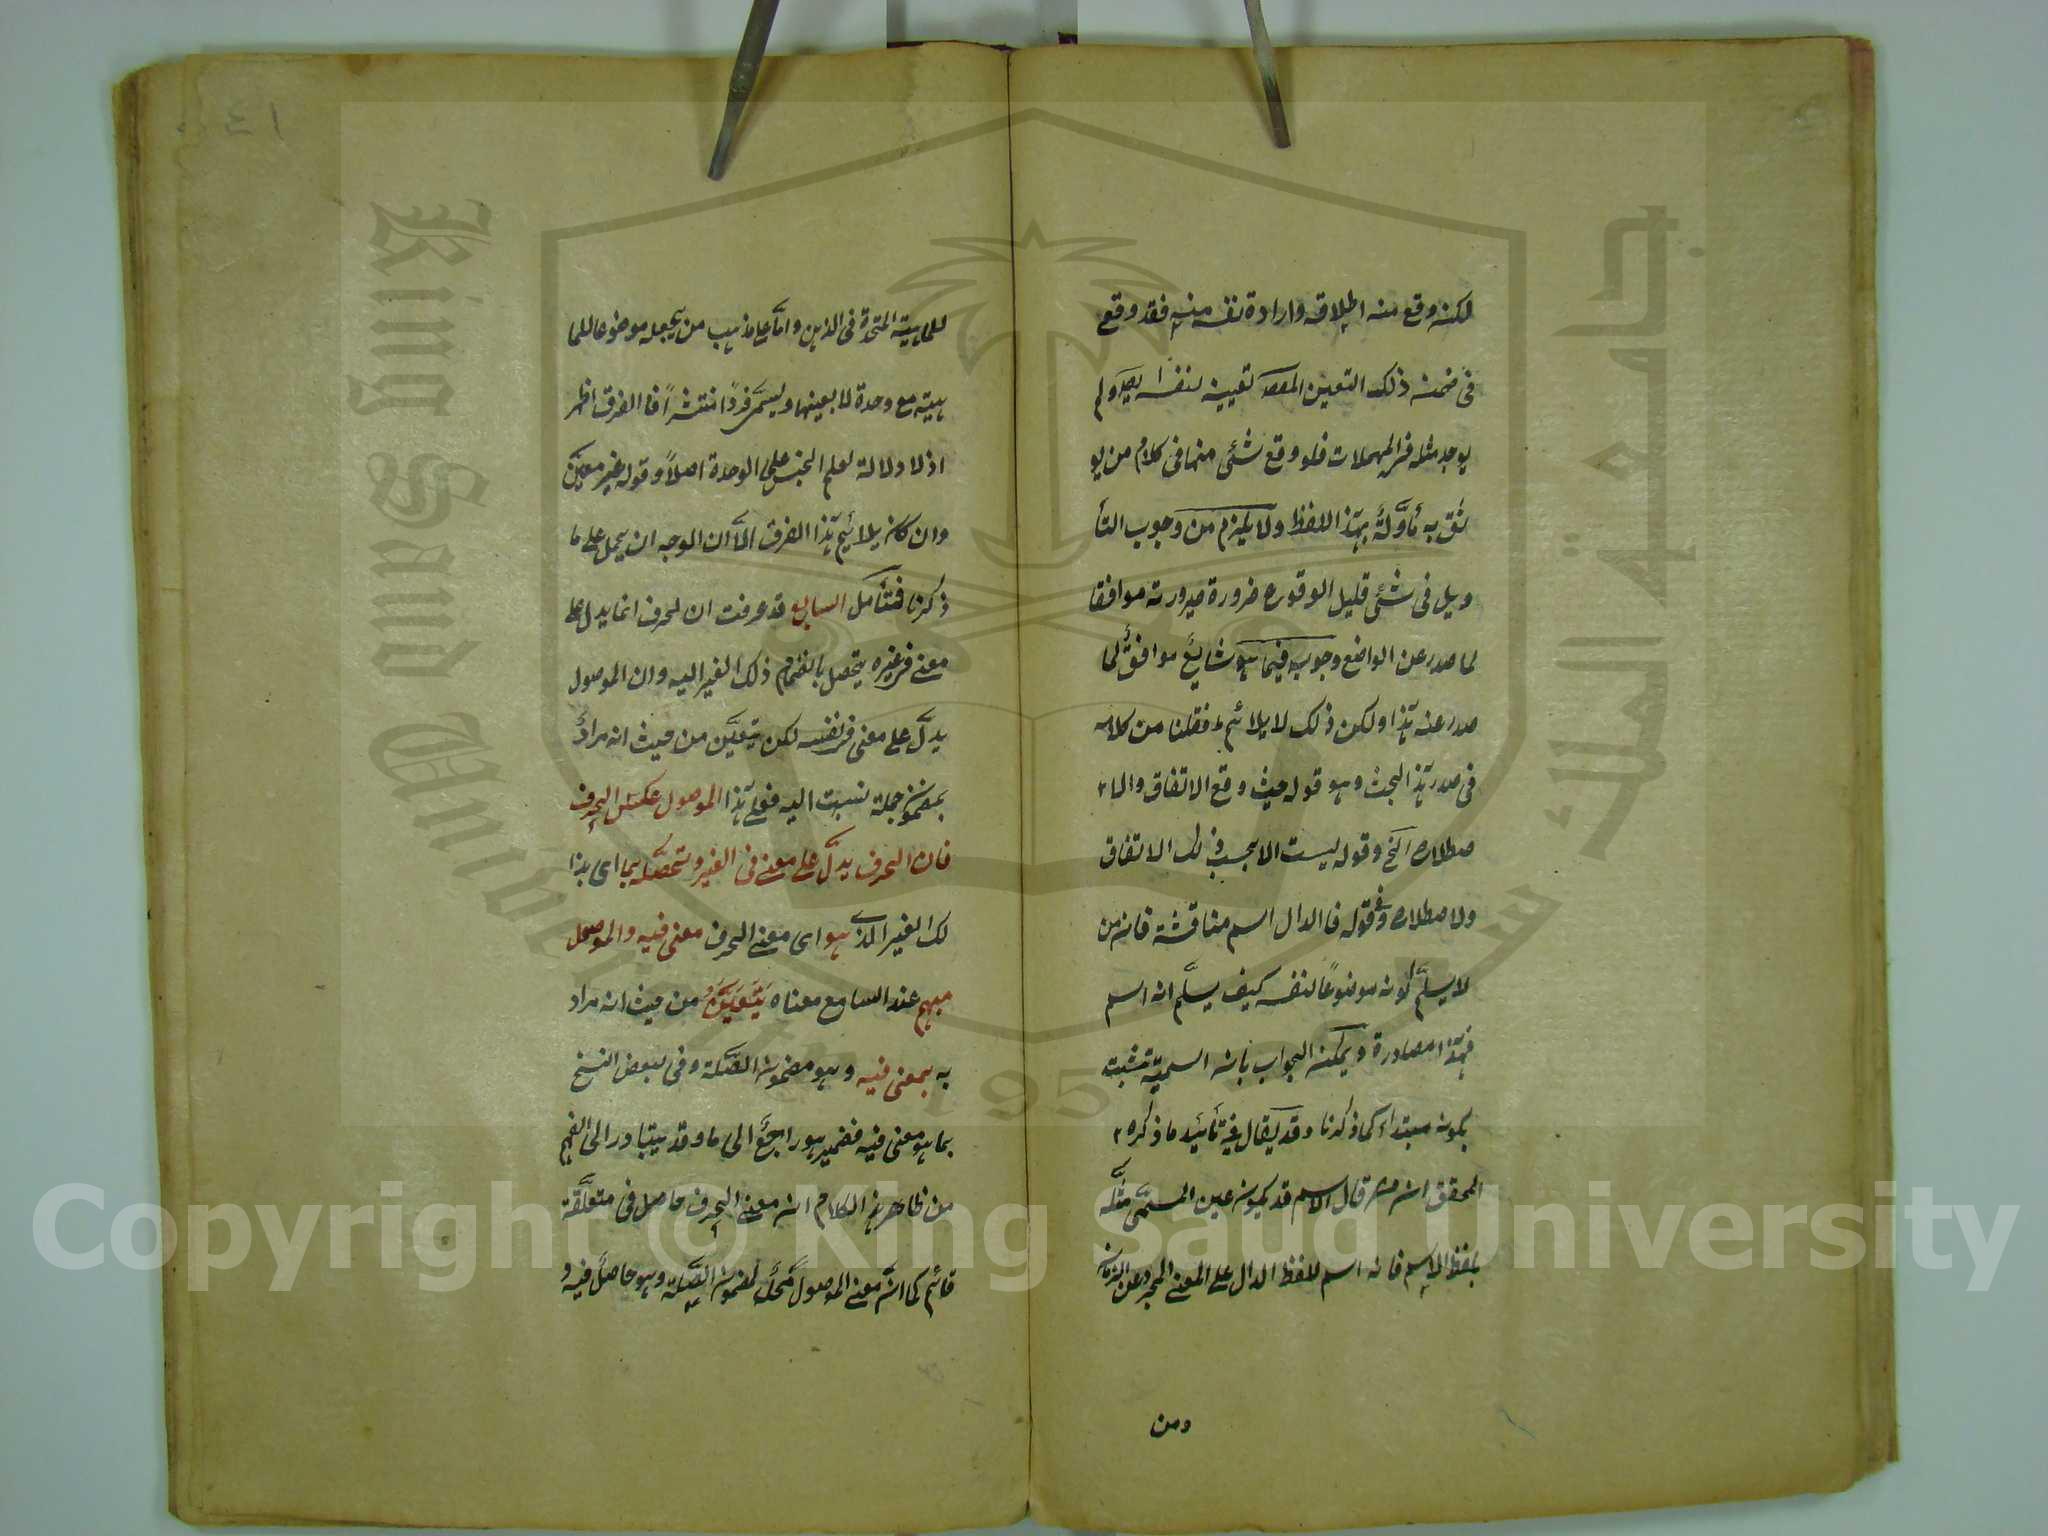 لكنه وقع منه اطلاقه وارادة نفسه منه فقد وقع
فى ضمنه ذلك التعين تعيينه لنفسه ولم
يوجد مثله فى المهملات فلو وقع شئى منها فى كلام من يو
ثق به نأوّله بهذا اللفظ ولا يلزم من وجوب التأ
ويل فى شئى قليل الوقوع ضرورة صيرورته موافقا
لما صدر عن الواضع وجوبه فيما هو شايع موافق لما
صدر عنه هذا ولكن ذلك لا يلائم ما نقلنا من كلامه
فى صدر هذا البحث وهو قوله حيث وقع الاتفاق والا
صطلاح الخ وقوله ليست الا بحسب ذلك الاتفاق
والاصطلاح وفى قوله فالدال اسم مناقشة فانه من
لا يسلّم كونه موضوعًا لنفسه كيف يسلّم انه اسم
فهذا مصادرة ويمكن الجواب بانه اسميّته تثبت
بكونه مبتداء كما ذكرنا وقد يقال فى تأئيد ما ذكره
المحقق انه قال الاسم قد يكون عين المسمّى مثّله
بلفظ الاسم فانه اسم للفظ الدال على المعنى المجرد عن الزمان
ومن
١٤
للماهيته المتحدة فى الذهن واما على مذهب من يجعله موضوعا للما
هيته مع وحدة لا بعينها ويسمى فردًا منتشرًا فالفرق اظهر
اذ لا دلالة لعلم الجنس على الوحدة اصلاً وقوله غير معيّن
وان كان يلائيم هذا الفرق الّا ان الوجه ان يحمل على ما
ذكرنا فتأمل السابع قد عرفت ان الحرف انما يدل على
معنى فى غيره يتحصل بانضمام ذلك الغير اليه وان الموصول
يدلّ على معنى فى نفسه لكن يتعيّن من حيث انه مرادٌ
بمضمون جملة نسبت اليه فعلى هذا الموصول عكس الحرف
فان الحرف يدلّ على معنى فى الغير وتحصّله بما اى بذا
لك الغير الذى هو اى معنى الحرف معنى فيه والموصول
مبهم عند السامع معناه يَتَعيّنُ من حيث انه مراد
به بمعنى فيه وهو مضمون الصّلة وفى بعض النسخ
بما هو معنى فيه فضمير هو راجعٌ الى ما وقد يتبادر الى الفهم
من ظاهر هذ الكلام انه معنى الحرف حاصل فى متعلّقه
قائم كما انّ معنى الموصول محلّ لمضمون الصّلة وهو حاصل فيه و
King Saud University
جامعة الملك سعود
1957
Copyright © King Saud University